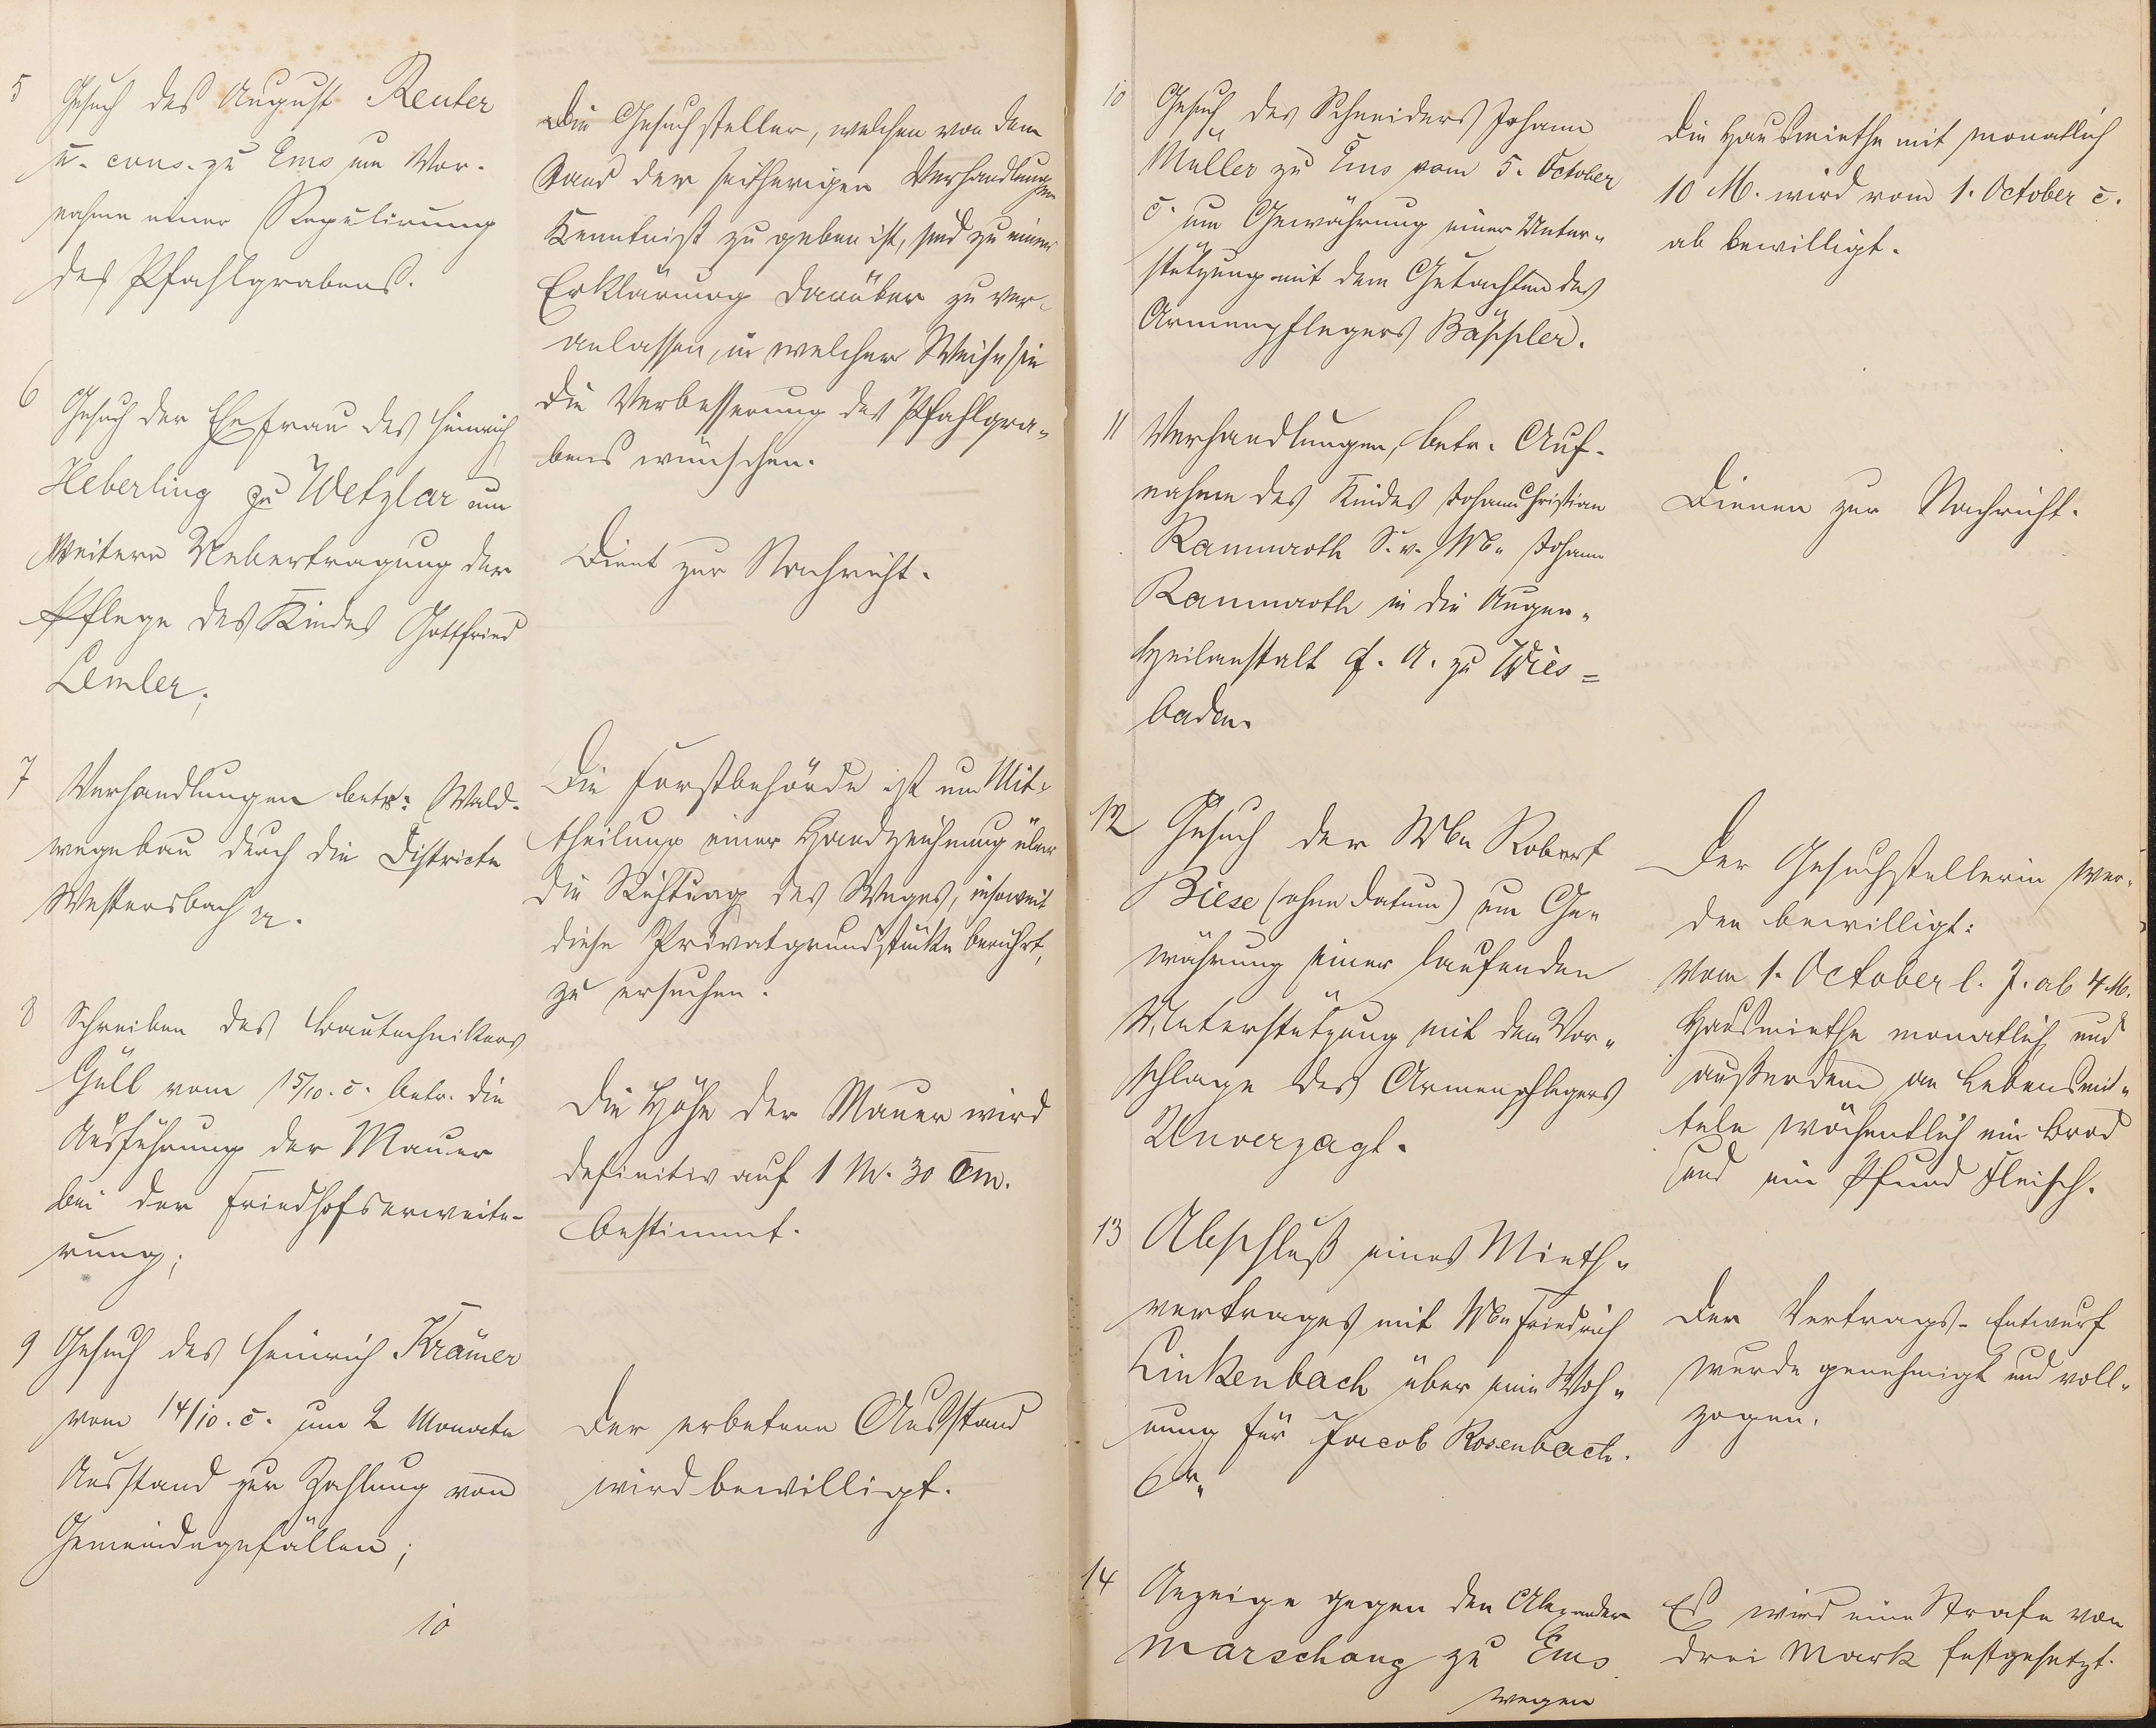 5 Gesuch des August Reuter
u. cons. zu Ems um Vor-
nahme einer Regulirung
des Pfahlgrabens.
Die Gesuchsteller, welchen von dem
Stand der seitherigen Verhandlungen
Kenntniß zu geben ist, sind zu einer
Erklärung darüber zu ver-
anlassen, in welcher Weise sie
die Verbesserung des Pfahlgra-
bens wünschen.
6 Gesuch der Ehefrau des Heinrich
Heberling zu Wetzlar um
Weitere Uebertragung der
Pflege des Kindes Gottfried
Lemler;
Dient zur Nachricht.
7 Verhandlungen betr: Wald-
wegebau durch die Districte
Westersbach
Die Forstbehörde ist um Mit-
theilung einer Handzeichnung über
die Richtung des Weges, insoweit
diese Privatgrundstücke berührt,
zu ersuchen.
8 Schreiben des Bautechnikers
Gull vom 15/10. c. betr. die
Ausführung der Mauer
bei der Friedhofserweite-
rung;
Die Höhe der Mauer wird
definitiv auf 1 M. 30 Cm.
bestimmt.
9 Gesuch des Heinrich Krämer
vom 14/10. c. um 2 Monate
Ausstand zur Zahlung von
Gemeindegefällen;
Der erbetene Ausstand
wird bewilligt.
10
10 Gesuch des Schneiders Johann
Müller zu Ems vom 5. October
c. um Gewährung einer Unter-
stützung mit dem Gutachten des
Armenpflegers Bäppler.
Die Hausmiethe mit monatlich
10 M. wird vom 1. October c.
ab bewilligt.
11 Verhandlungen, betr. Auf-
nahme des Kindes Johann Christian
Rammroth S. v. Johann
Rammroth in die Augen-
heilanstalt f. A. zu Wies=
baden.
Dienen zur Nachricht.
12 Gesuch der Wwe Robert
Biese (ohne Datum) um Ge-
währung einer laufenden
Unterstützung mit dem Vor-
schlage des Armenpflegers
Unverzagt.
Der Gesuchstellerin wer-
den bewilligt:
Vom 1. October l. J. ab 4 M.
Hausmiethe monatlich und
außerdem an Lebensmit-
teln wöchentlich ein Brod
und ein Pfund Fleisch.
13 Abschluß eines Mieth-
vertrages mit Wwe Friedrich
Linkenbach über eine Woh-
nung für Jacob Rosenbach.
Der Vertrags-Entwurf
wurde genehmigt und voll-
zogen.
14 Anzeige gegen den Alexander
Marschang zu Ems
wegen
Es wird eine Strafe von
drei Mark festgesetzt.